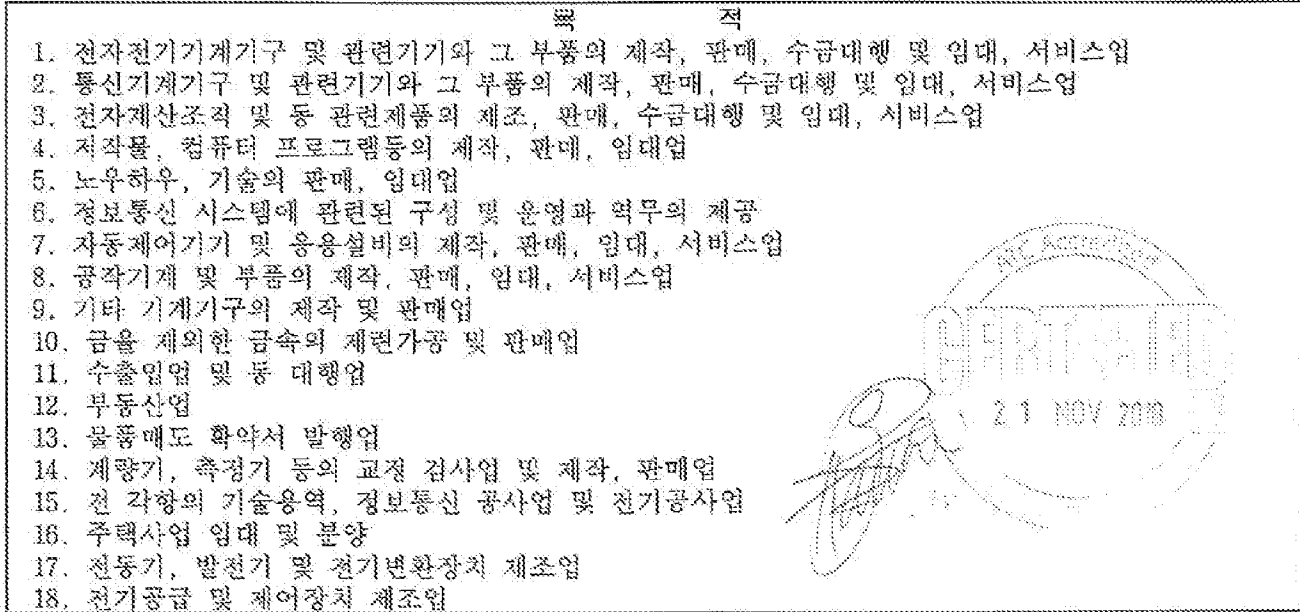 목 적
1. 전자전기기계기구 및 관련기기와 그 부품의 제작, 판매, 수금대행 및 임대, 서비스업
2. 통신기계기구 및 관련기기와 그 부품의 제작, 판매, 수금대행 및 임대, 서비스업
3. 전자계산조직 및 동 관련제품의 제조, 판매, 수금대행 및 임대, 서비스업
4. 저작물, 컴퓨터 프로그램등의 제작, 판매, 임대업
5. 노우하우, 기술의 판매, 임대업
6. 정보통신 시스템에 관련된 구성 및 운영과 역무의 제공
7. 자동제어기기 및 응용설비의 제작, 판매, 임대, 서비스업
8. 공작기계 및 부품의 제작, 판매, 임대, 서비스업
9. 기타 기계기구의 제작 및 판매업
10. 금을 제외한 금속의 제련가공 및 판매업
11. 수출입업 및 동 대행업
12. 부동산업
13. 물품매도 확약서 발행업
14. 계량기, 측정기 등의 교정 검사업 및 제작, 판매업
15. 전 각항의 기술용역, 정보통신 공사업 및 전기공사업
16. 주택사업 임대 및 분양
17. 전동기, 발전기 및 전기변환장치 제조업
18. 전기공급 및 제어장치 제조업
CERTIFIED
21 NOV 2018